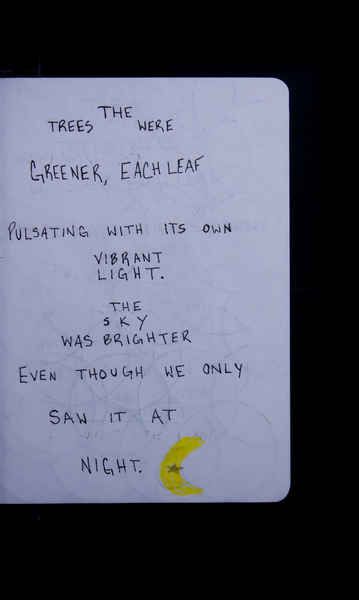 THE
TREES WERE
GREENER, EACH LEAF
PULSATING WITH ITS OWN
VIBRANT
LIGHT.
THE
SKY
WAS BRIGHTER
EVEN THOUGH WE ONLY
SAW IT AT
NIGHT.